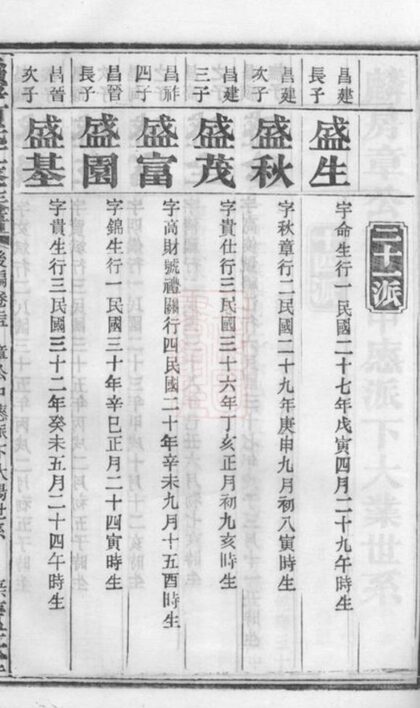 二十一派
昌建
長子
盛生
字命生行一民國二十七年戊寅四月二十九午時生
昌建
次子
盛秋
字秋章行二民國二十九年庚申九月初八寅時生
昌建
三子
盛茂
字貴仕行三民國三十六年丁亥正月初九亥時生
昌祚
四子
盛富
字高財號禮關行四民國二十年辛未九月十五酉時生
昌晉
長子
盛園
字錦生行一民國三十年辛巳正月二十四寅時生
昌晉
次子
盛基
字貴生行三民國三十二年癸未五月二十四午時生